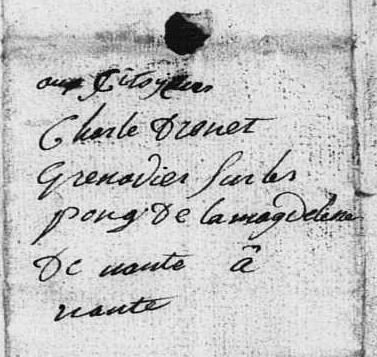 aux Citoyens
Charle Drouet
Grenadier sur les
pong De la magdelenne
De nante â
nante